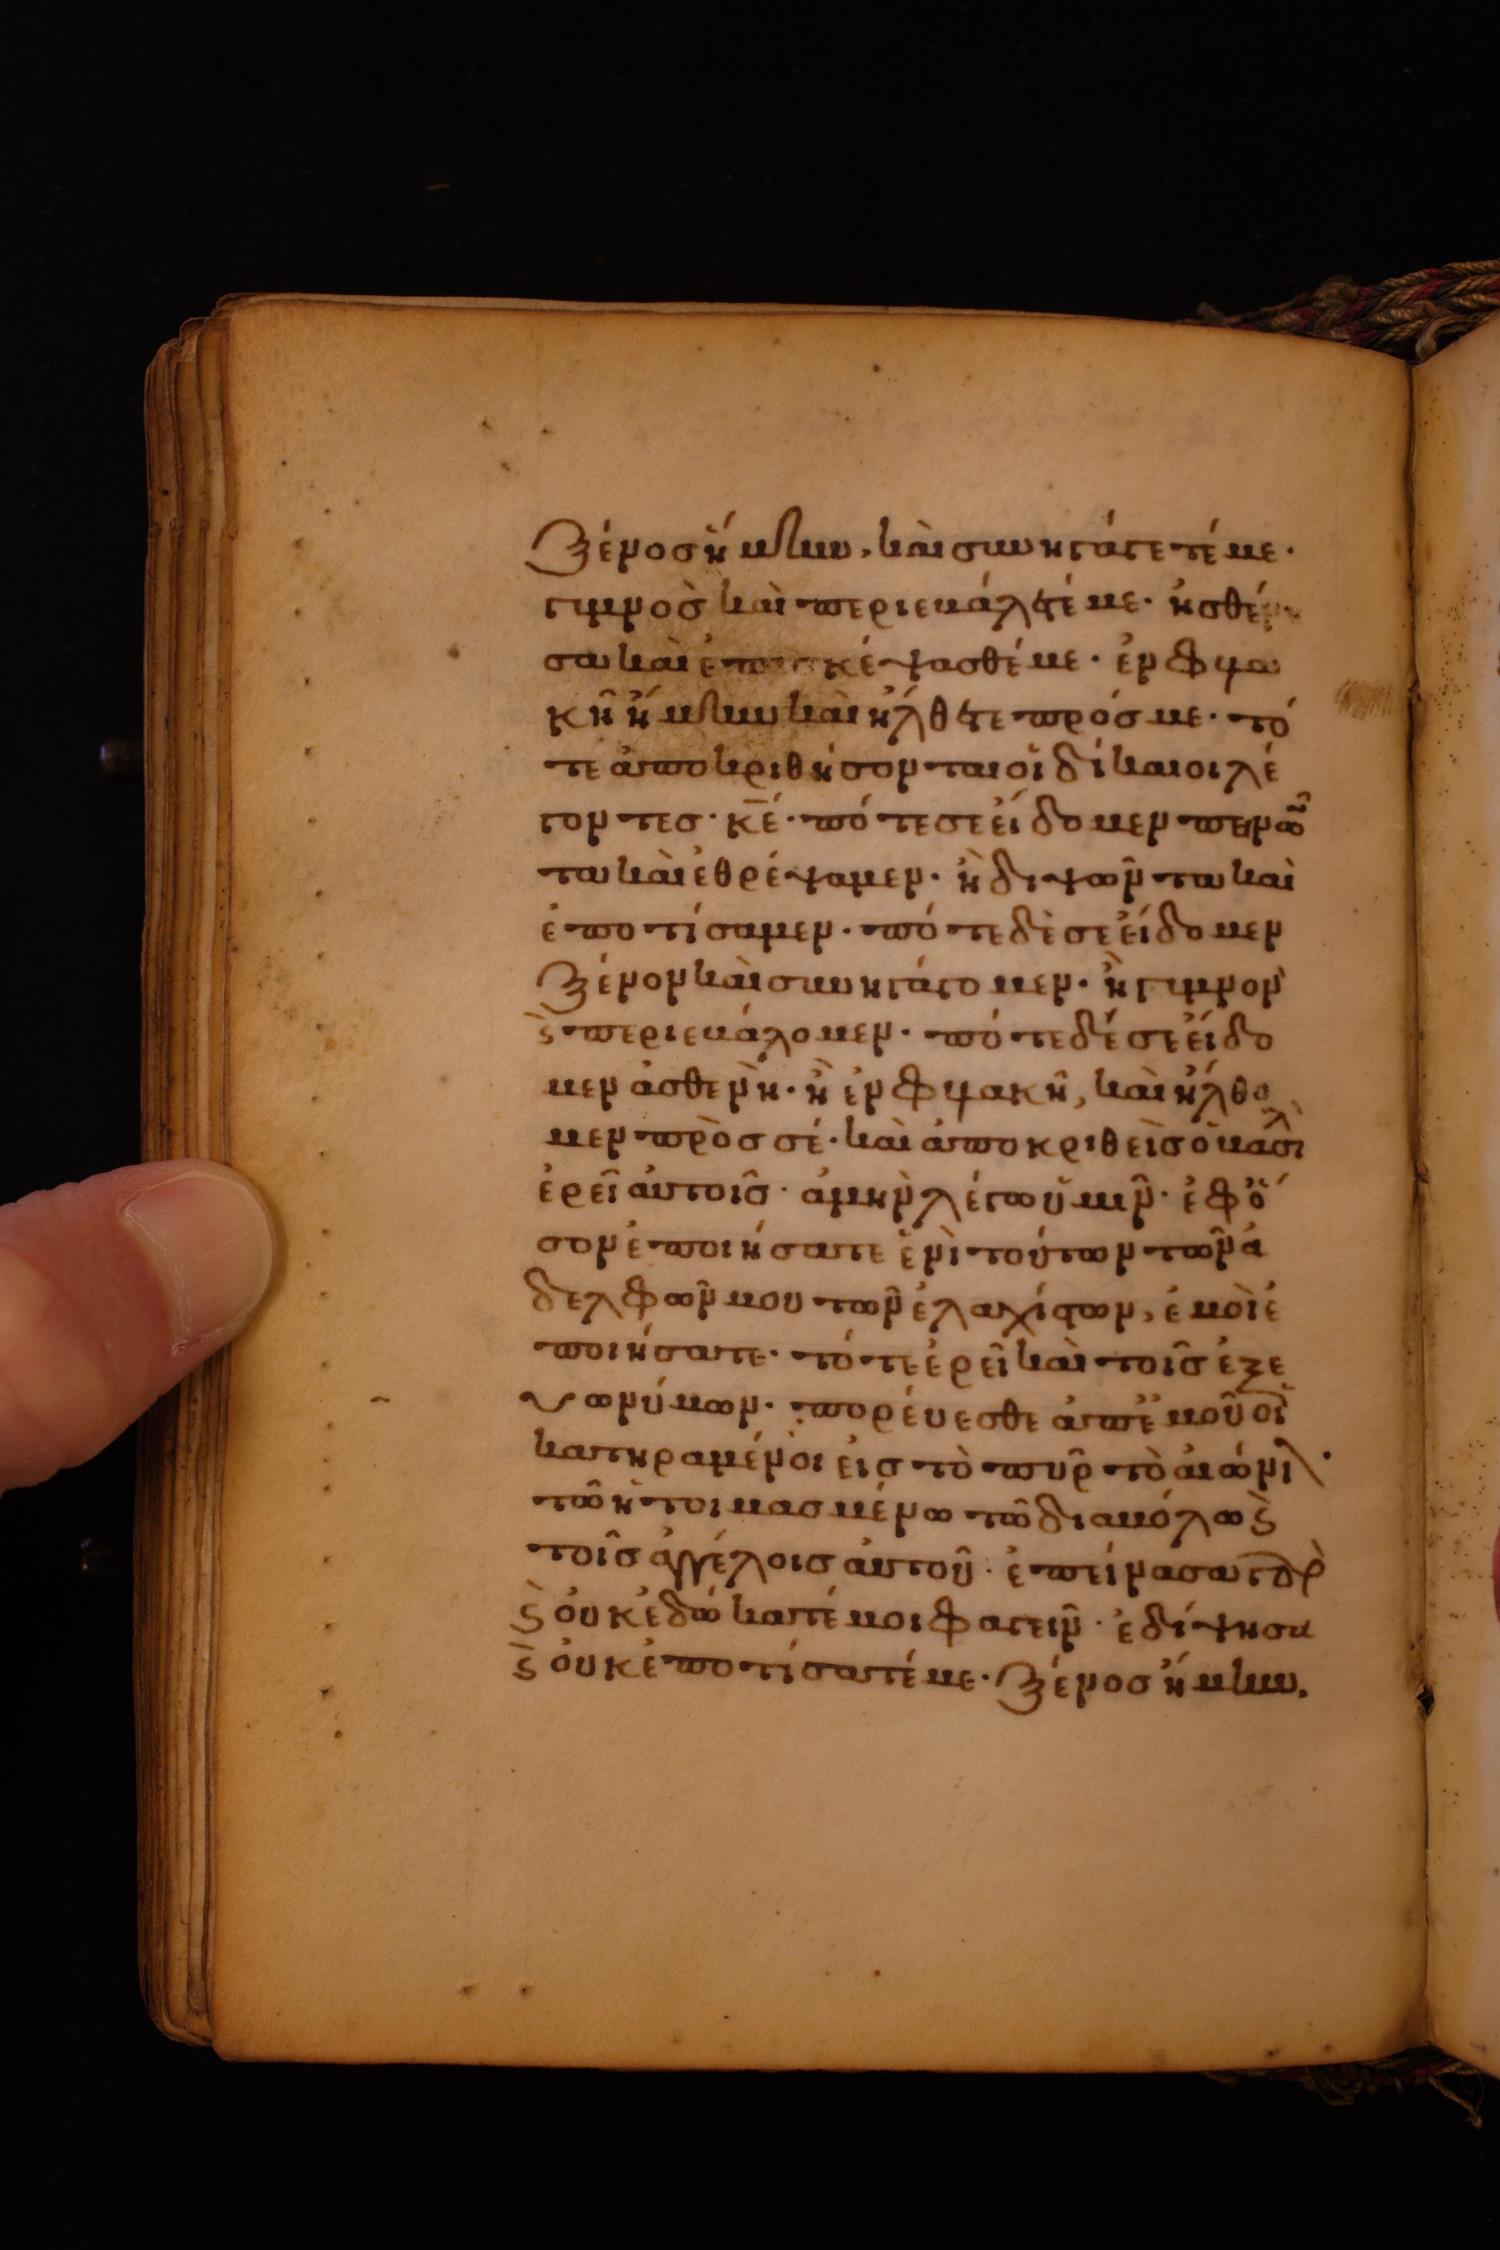 ξένος ἤμην, καὶ συνηγάγετέ με·
γυμνὸς καὶ περιεβάλετέ με· ἠσθέν
σα καὶ ἐπεσκέψασθέ με· ἐν φυλα
κῆ ἤμην καὶ ἤλθετε πρός με· τό
τε ἀποκριθήσονται οἱ δίκαιοι λέ
γοντες· κ̅ε̅· πότε σε εἴδομεν πεινῶν
τα καὶ ἐθρέψαμεν· ἢ διψῶντα καὶ
ἐποτίσαμεν· πότε δέ σε εἴδομεν
ξένον καὶ συνηγάγομεν· ἢ γυμνὸν
ϛ̀ περιεβάλομεν· πότε δέ σε εἴδο
μεν ἀσθενῆ· ἢ ἐν φυλακῆ, καὶ ἤλθο
μεν πρὸς σέ· καὶ ἀποκριθεὶς ὁ βασιλ
ἐρεῖ αὐτοῖς· ἀμὴν λέγω ὑμῖν· ἐφ ὅ
σον ἐποιήσατε ἑνὶ τούτων τῶν ἀ
δελφῶν μου τῶν ἐλαχίστων, ἐμοὶ ἐ
ποιήσατε· τότε ἐρεῖ καὶ τοῖς ἐξ ε
υωνύμων· πορέυεσθε ἀπ ἐμοῦ οἱ
κατηραμένοι εἰς τὸ πῦρ τὸ αἰώνι·
τῶ ἡτοιμασμένω τῶ διαβόλω ϛ̀
τοῖς ἀγγέλοις αὐτοῦ· ἐπείνασα γὰρ
ϛ̀ οὐκ ἐδώκατέ μοι φαγεῖν· ἐδίψησα
ϛ̀ οὐκ ἐποτίσατέ με· ξένος ἤμην.